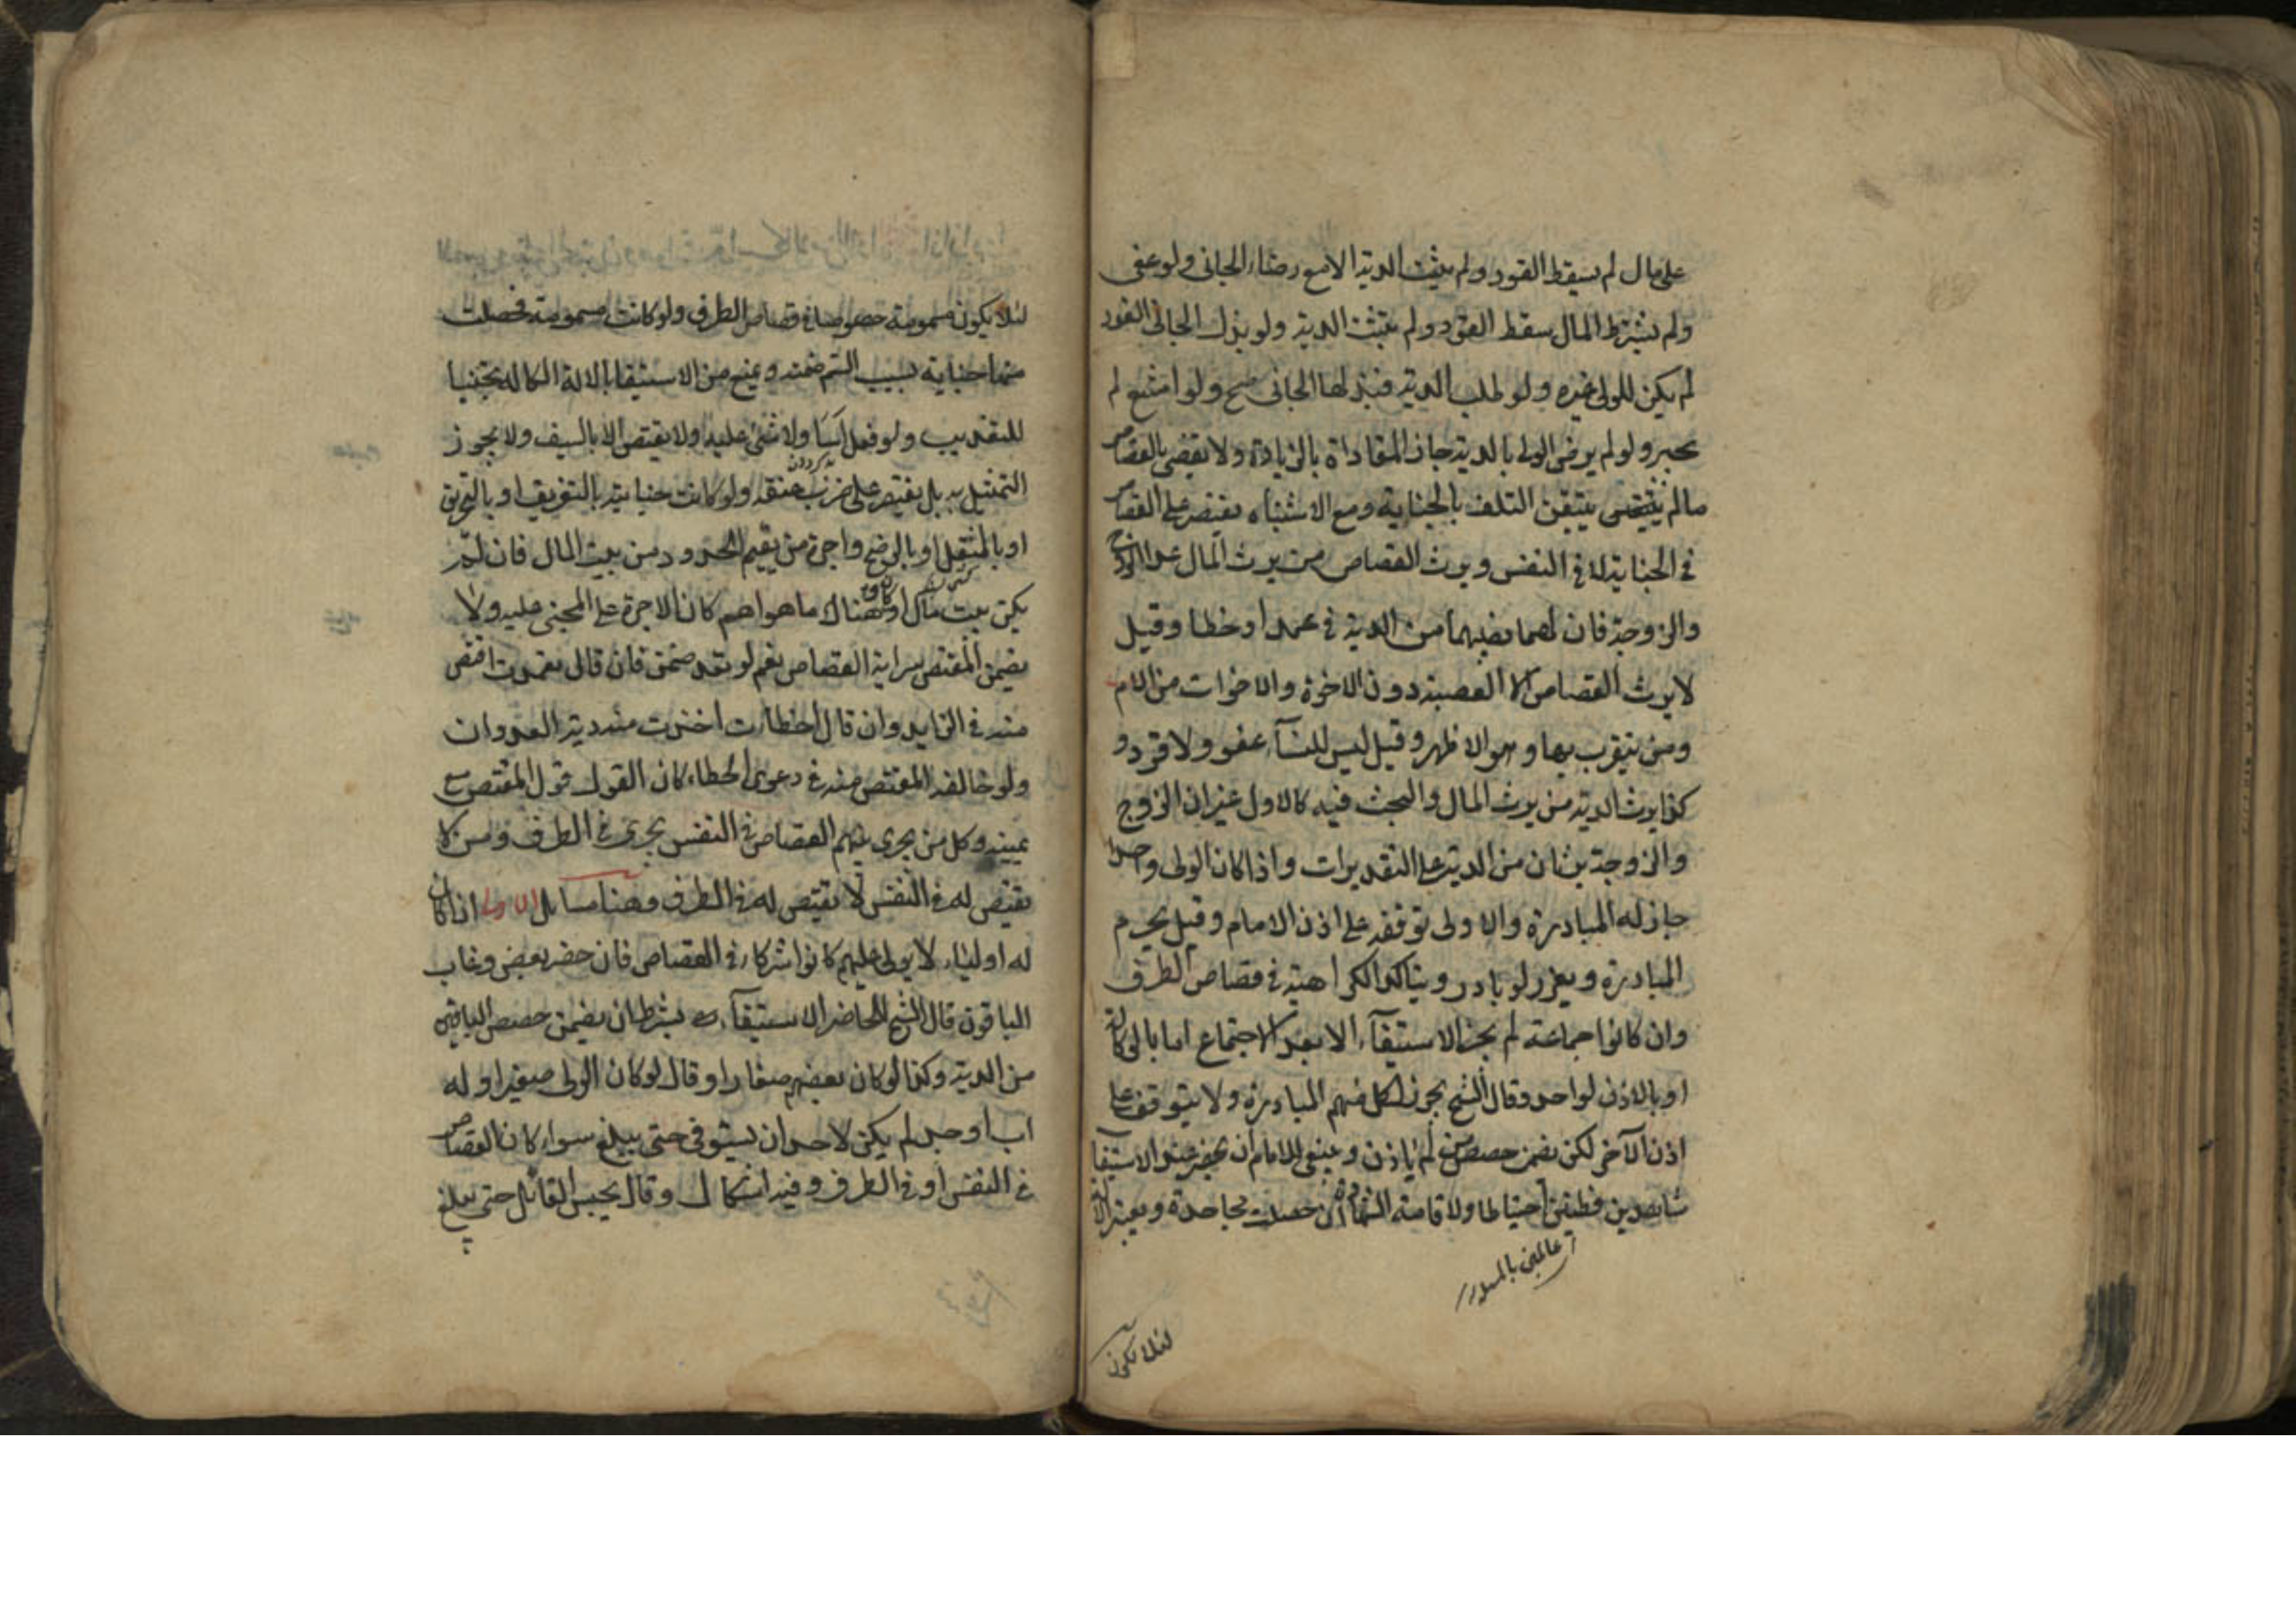 على مال لم يسقط القود ولم يثبت الدية الا مع رضاء الجاني ولو عفى
ولم يشترط المال سقط القود ولم يثبت الدية ولو بذل الجاني القود
لم يكن للولي غيره ولو طلب الدية فبذلها الجاني صح ولو امتنع لم
يجبر ولو لم يرض الولي بالدية جاز المفاداة بالزيادة ولا يقضى بالقصاص
ما لم يتيقن التلف بالجناية ومع الاشتباه يقتصر على القصاص
في الجناية لا في النفس ويرث القصاص من يرث المال عدا الزوج
والزوجة فان لهما نصيبهما من الدية في عمد او خطا وقيل
لا يرث القصاص الا العصبة دون الاخوة والاخوات من الام
ومن يتقرب بها وهو الاظهر وقيل ليس للنسآء عفو ولا قود و
كذا يرث الدية من يرث المال والبحث فيه كالاول غير ان الزوج
والزوجة يرثان من الدية على التقديرات واذا كان الولي واحدا
جاز له المبادرة والاولى توقفه على اذن الامام وقيل يحرم
المبادرة ويعزر لو بادر ويتاكد الكراهية في قصاص الطرف
وان كانوا جماعة لم يجز الاستيفآء الا بعد الاجتماع اما بالوكالة
او بالاذن لواحد وقال الشيخ يجوز لكل منهم المبادرة ولا يتوقف على
اذن الآخر لكن يضمن حصص من لم ياذن وينبغي للامام ان يحضر عند الاستيفا
شاهدين فطنين احتياطا ولاقامة الشهادة ان حصلت مجاحدة ويعتبر الالة
عالمين
لئلا يكون
لئلا يكون مسمومة خصوصا في قصاص الطرف ولو كانت مسمومة فحصلت
منها جناية بسبب السم ضمنه ويمنع من الاستيفا بالالة الكالة تجنبا
للتعذيب ولو فعل اسآ ولا شئ عليه ولا يقتص الا بالسيف ولا يجوز
التمثيل به بل يقتصر على ضرب عنقه ولو كانت جنايته بالتغريق او بالتحريق
او بالمثقل او بالرضخ واجرة من يقيم الحدود من بيت المال فان لم
يكن بيت مال او كان هناك ما هو اهم كان الاجرة على المجني عليه ولا
يضمن المقتص سراية القصاص نعم لو تعدى ضمن فان قال تعمدت اقتص
منه في الزايد وان قال اخطات اخذت منه دية العدوان
ولو خالفه المقتص منه في دعوى الخطاء كان القول قول المقتص مع
يمينه وكل من يجري بينهم القصاص في النفس يجري في الطرف ومن لا
يقتص له في النفس لا يقتص له في الطرف وهنا مسايل الاولى اذا كان
له اولياء لا يولى عليهم كانوا شركاء في القصاص فان حضر بعض وغاب
الباقون قال الشيخ للحاضر الاستيفآء بشرط ان يضمن حصص الباقين
من الدية وكذا لو كان بعضهم صغارا وقال لو كان الولي صغيرا وله
اب او جد لم يكن لاحد ان يستوفي حتى يبلغ سواء كان القصاص
في النفس او في الطرف وفيه اشكال وقال يحبس القاتل حتى يبلغ